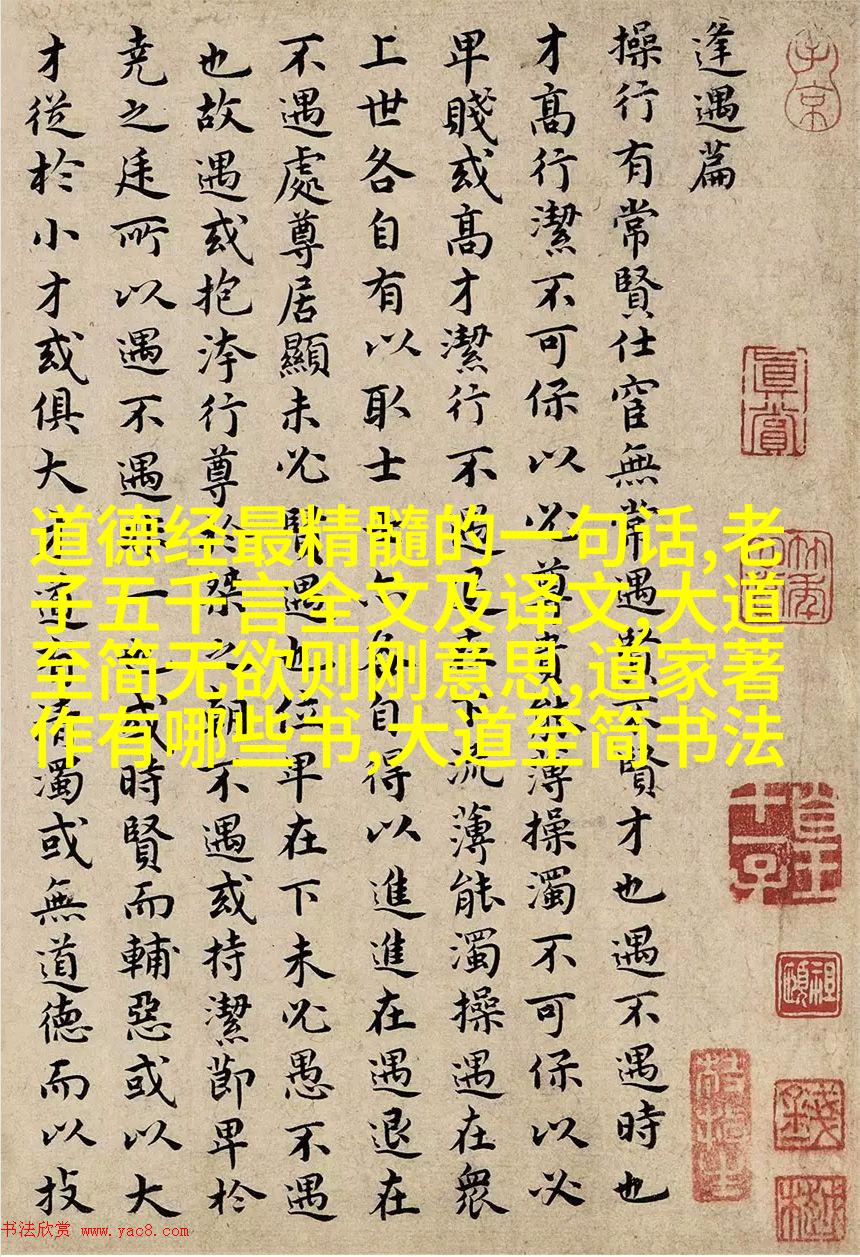 逢遇篇
操行有常賢仕宦無常遇賢不賢才也遇不遇時也
才高行潔不可保以必尊貴能薄操濁不可保以必
卑賤或高才潔行不遇退在下流薄能濁操遇在衆
上世各自有以取士士亦各自得以進進在遇退在
不遇處尊居顯未必賢遇也位卑在下未必愚不遇
也故遇或抱洿行尊於桀之朝不遇或持潔節卑於
堯之廷所以遇不遇非一也或時賢而輔惡或以大
才從於小才或俱大才道有清濁或無道德而以技
真賞
道德经最精髓的一句话,老
子五千言全文及译文,大道
至简无欲则刚意思,道家著
作有哪些书,大道至简书法
书法欣赏 www.yac8.com